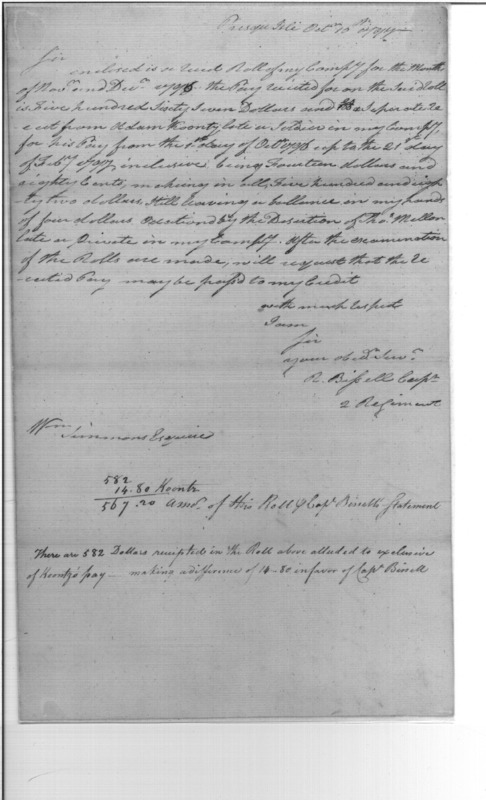 Presque Isle Octr 10th
Sir
enclosed is a Receit Roll of my Compy for the Month
of Novr and Decr 1796 the Pay receited for on the said Roll
is Five hundred Sixty Seven Dollars and a Seperate re
ceit from Adam Koontz late a Soldier in my Compy
for his Pay from the 1st day of Octr 1796 up to the 21st day
of Feby 1797 inclusive being Fourteen dollars and
eighty Cents, making in all, Five hundred and eigh
ty two dollars, Still leaving a ballance in my hands
of four dollars Occationd by the Desertion of Thos Mellon
late a Private in my Compy. After the examination
of the Rolls are made, will request that the re
ceited Pay may be passd to my Credit
with much respect
I am
Sir
your obdt Servt
R. Bissell Capt
2 Regiment
Wm Simmons Esquire
582
14.80 Koontz
567.20 amo. of this Roll & Capt Bissells Statement
There are 582 Dollars receipted in the Roll above alluded to exclusive
of Koontz's pay — making a difference of 14-80 in favor of Capt Bissell